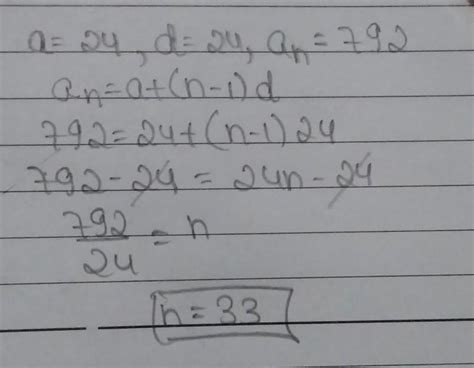 a = 24, d = 24, an = 792
an = a+(n-1)d
792 = 24+(n-1)24
792 - 24 = 24n - 24
792/24 = n
n = 33